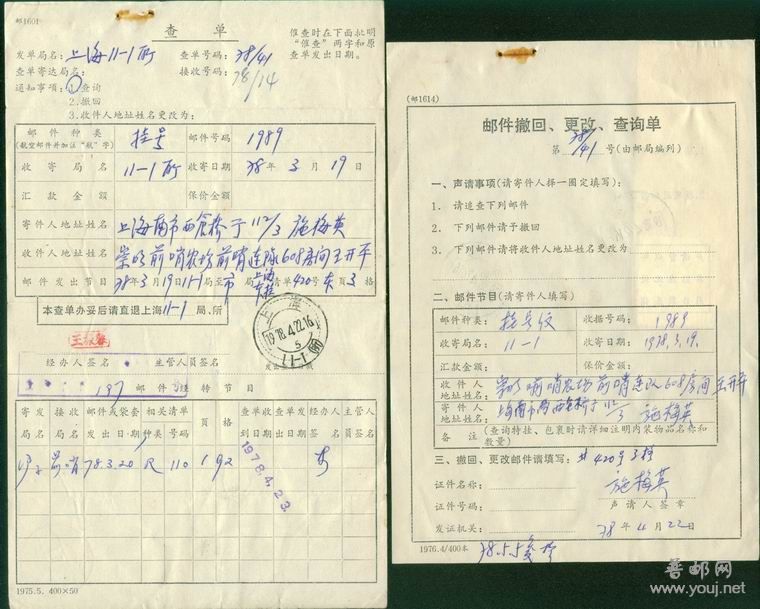 邮1601
查 单
催查时在下面批明
“催查”两字和原
查单发出日期。
发单局名：上海11-1所
查单号码：78/41
查单寄达局名：
接收号码：78/14
通知事项：①查询
2.撤回
3.收件人地址姓名更改为：
邮件种类
(航空邮件并加注“航”字)
挂号
邮件号码
1989
收寄局名
11-1所
收寄日期
78年3月19日
汇款金额
保价金额
寄件人地址姓名
上海南市西仓桥子112/3 施梅英
收件人地址姓名
崇明前哨农场前哨连队608房间王开平
邮件发出节目
78年3月19日11-1局至市
局
清单420号 页3格
本查单办妥后请直退上海11-1局、所
上海
1978.4.22.16
5
11-1(所)
经办人签名
主管人员签名
197
邮件经转节目
寄发局名
接收局名
邮件或袋套发出日期
相关清单种类号码
页
格
查单收到日期
查单发出日期
经办人签名
主管人员签名
前哨 78.3.20 R 110 1 92
1978.4.23.
1975.5. 400×50
(邮1614)
邮件撤回、更改、查询单
第78/41号(由邮局编列)
一、声请事项(请寄件人择一圈定填写)：
1. 请追查下列邮件
2. 下列邮件请予撤回
3. 下列邮件请将收件人地址姓名更改为
二、邮件节目(请寄件人填写)
邮件种类：
挂号
收据号码：
1989
收寄局名：
11-1
收寄日期：
1978.3.19.
汇款金额：
保价金额：
收件人地址姓名：
崇明前哨农场前哨连队608房间王开平
寄件人地址姓名：
上海南市西仓桥子112/3 施梅英
备注
(查询特挂、包裹时请详细注明内装物品名称和数量)
三、撤回、更改邮件请填写：
420号3格
证件名称：
施梅英
证件号码：
声请人签章
发证机关：
78年4月22日
1976.4/400本
78.5.5
普邮网
www.youj.net